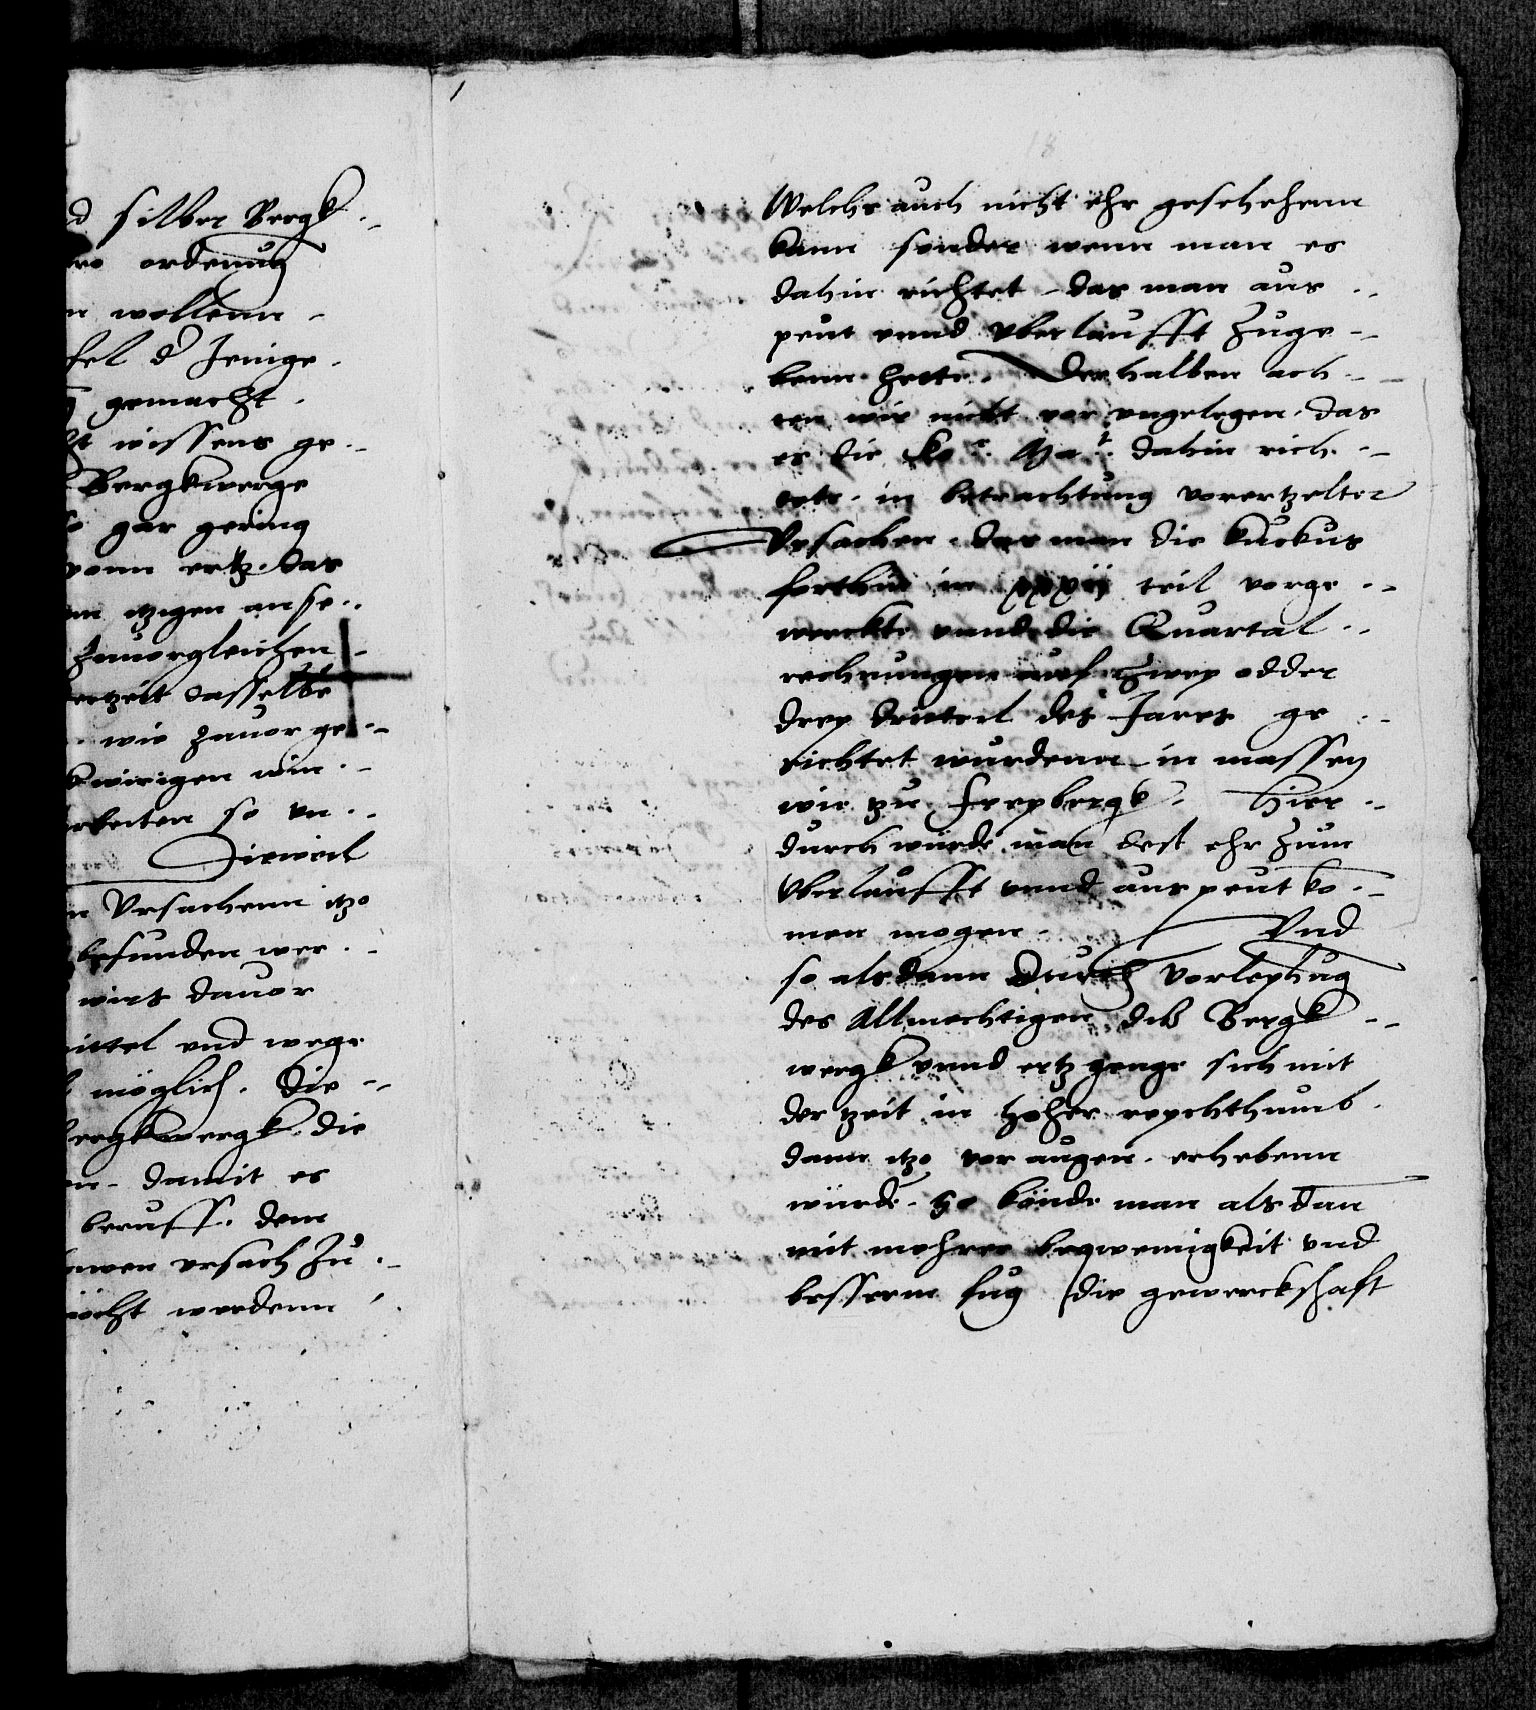 d silber Bergk
ero ordenung
n wollenn
fel d Jenige
gemacht
ht wissens ge
Bergkwerge
so gar gering
vonn ertz das
en itzigen anse
zuuorgleichen
ertzeit dasselbe
wie zuuor ge
kwirigen
erbeiten so vn
Dieweil
n Vrsachenn itzo
befunden wer
wirt dauor
mittel vnd wege
möglich. Die
bergkwergk die
en damit es
beruff. dem
wen vrsach zu
wecht werdenn
Welchs auch nicht ehr geschehenn
kann sonder wenn man es
dahin richtet das man aus
peut vnnd vberlaufft zuge
benn hette. Derhalben ach
ten wir nicht vor vngelegen das
es die Ko.r Ma.t dahin rich
tete in betrachtung vorertzelter
Vrsachen das man die kuckus
forthin in xxxii teil vorge
werckte vnnd die Quartal
rechnungen auf zwey odder
drey drieteil des Jares ge
richtet wurdenn in massen
wie tzu Freybergk. Hier
durch wurde man dest ehr zum
Vberlaufft vnnd auspeut ko
men mogen. Vnd
so alsdann Durch Vorleyhug
des Allmechtigen dis Bergk
wergk vnnd ertz genge sich mit
der tzeit in hoher reychthumb
dann itzo vor augen erhebenn
würde. so könde man als dan
mit mehrer beqwemigkeit vnd
besserm fug die gewerckschaft